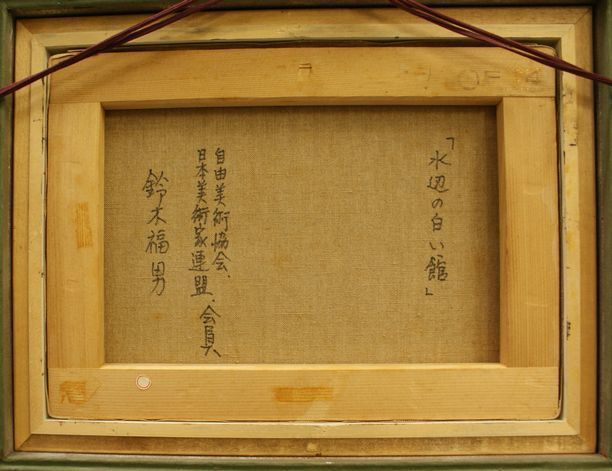 「水辺の白い館」
自由美術協会、
日本美術家連盟、会員
鈴木福男